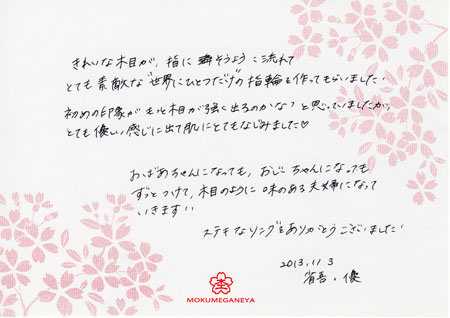 きれいな木目が、指に寄りそうように流れて
とても素敵な“世界にひとつだけ”の指輪を作ってもらいました!
初めの印象がもっと木目が強く出るのかな?と思っていましたが、
とても優しい感じに出て肌にとてもなじみました♡
おばあちゃんになっても、おじいちゃんになっても
ずっとつけて、木目のように味のある夫婦になって
いきます!!
ステキなリングをありがとうございました!
2013.11.3
省吾・優
MOKUMEGANEYA